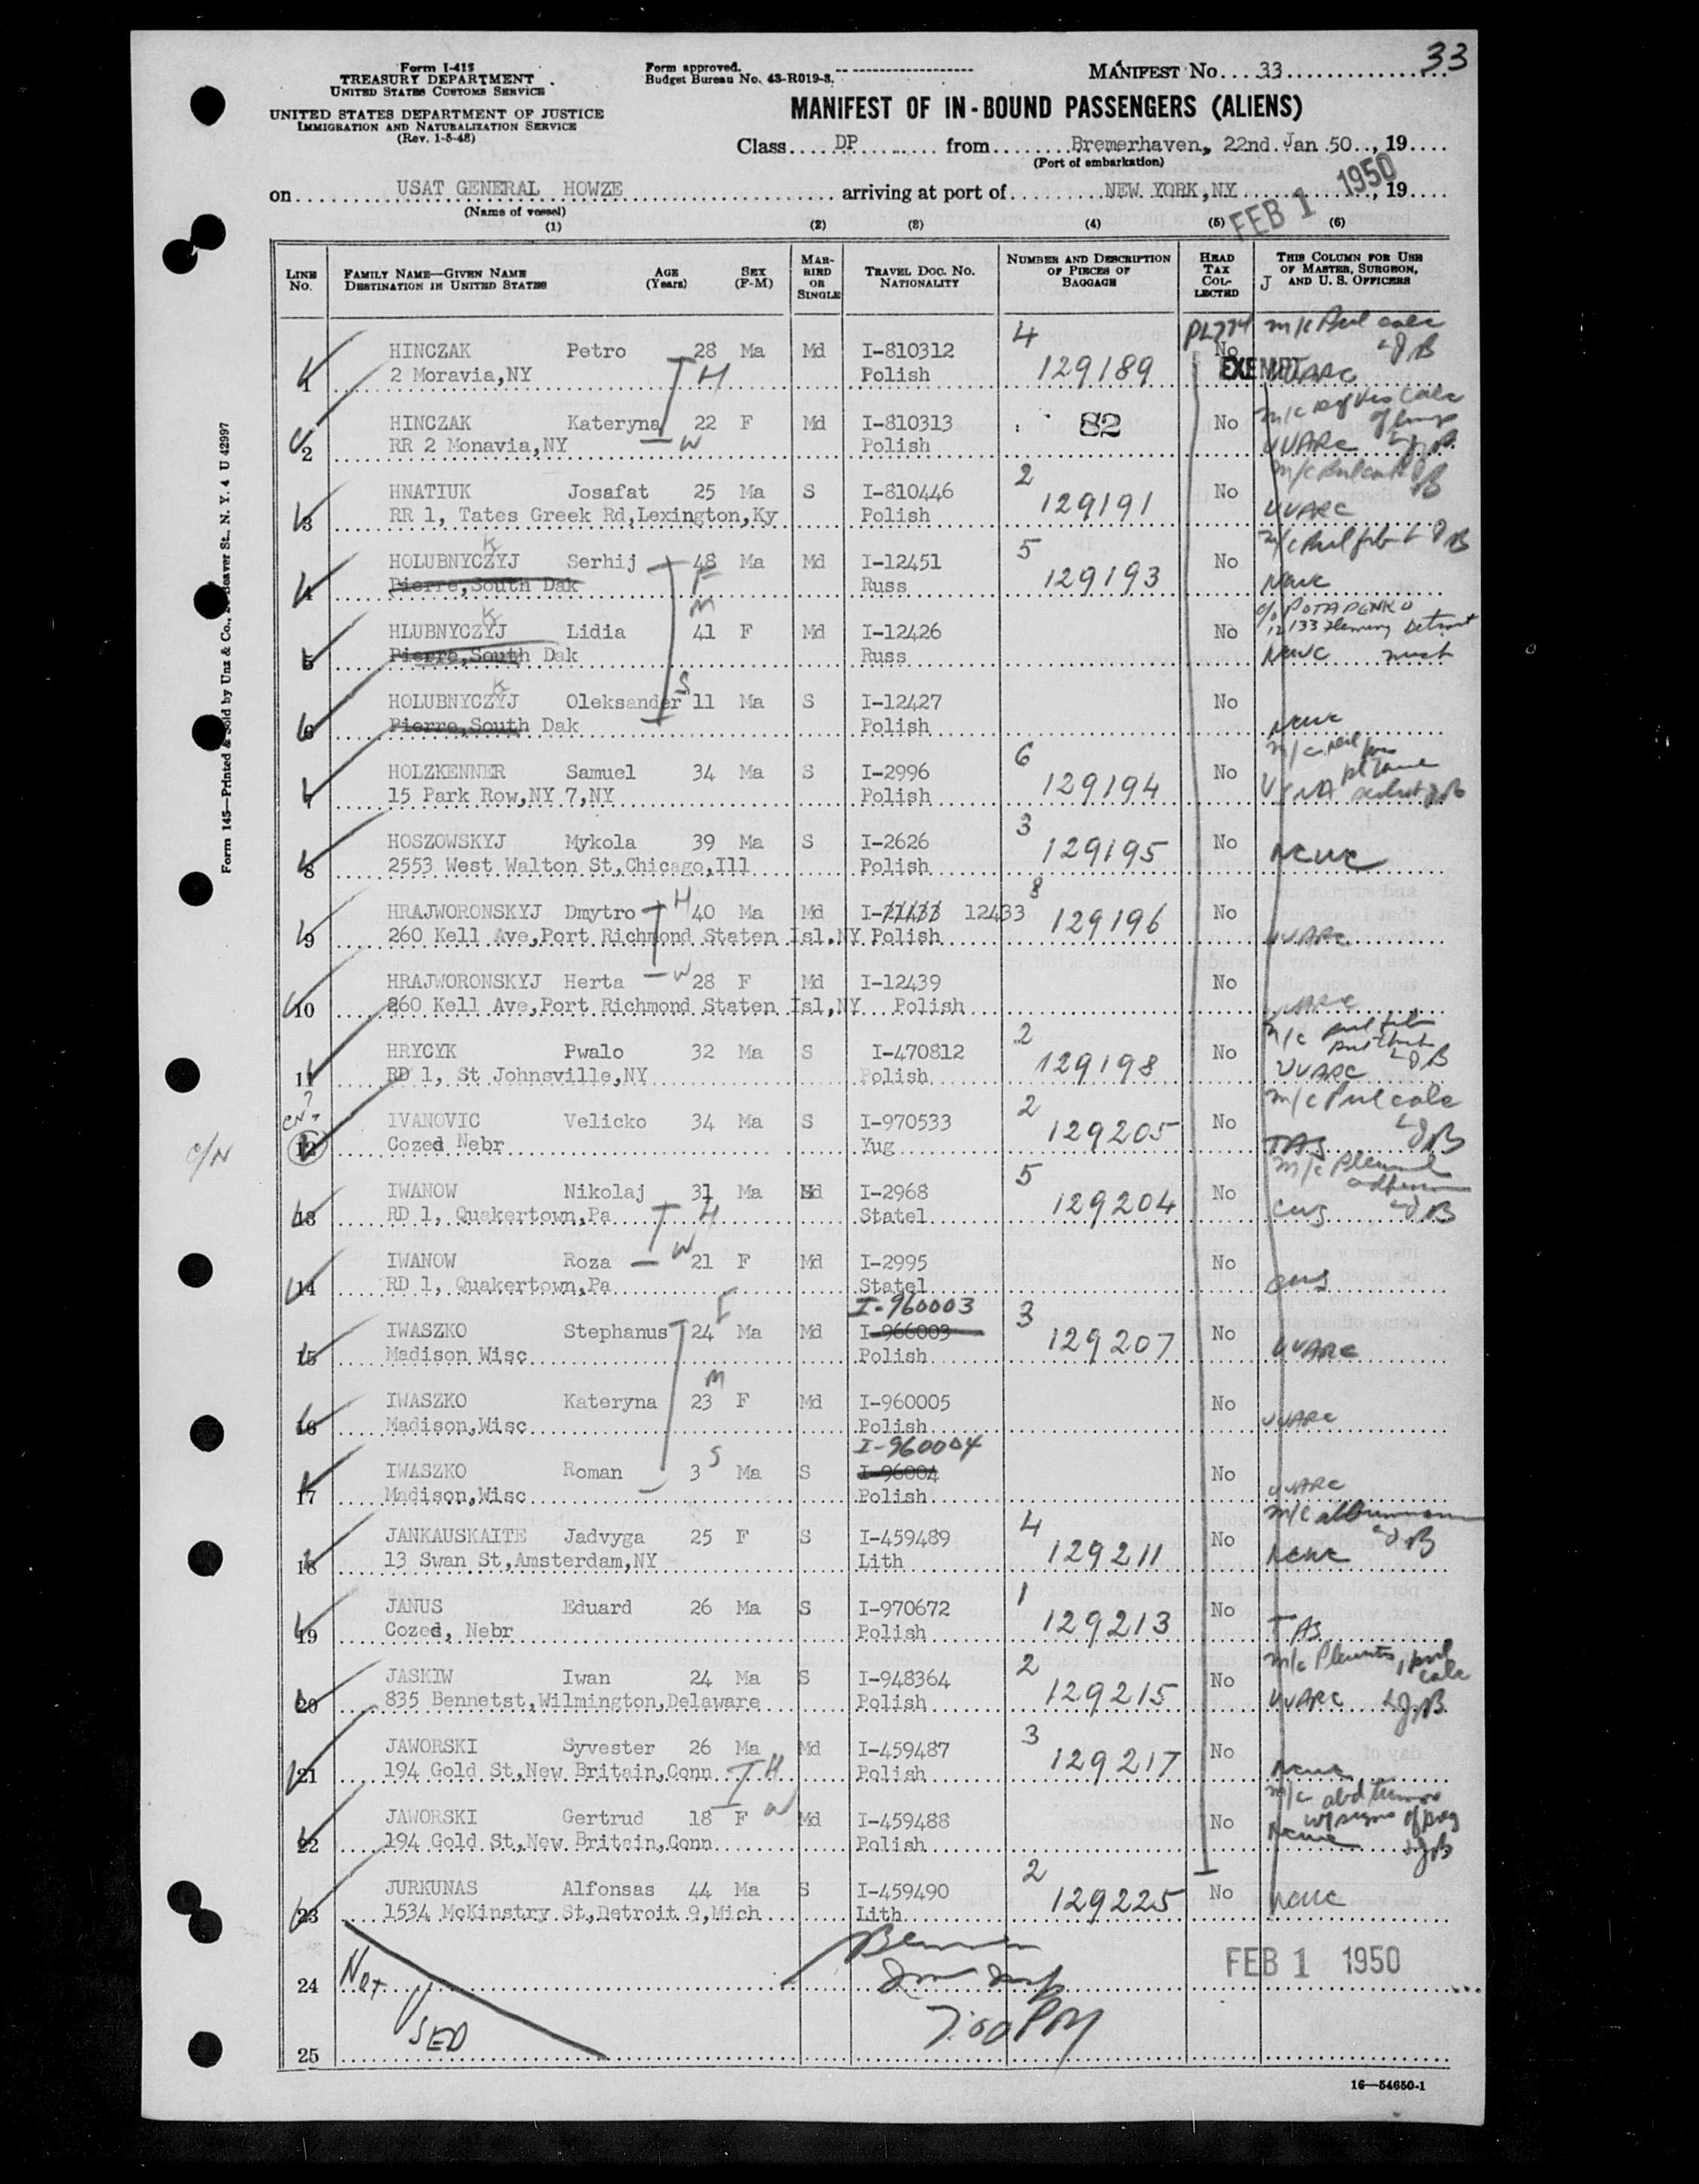 33
Form I-418
TREASURY DEPARTMENT
UNITED STATES CUSTOMS SERVICE
UNITED STATES DEPARTMENT OF JUSTICE
IMMIGRATION AND NATURALIZATION SERVICE
(Rev. 1-5-48)
Form approved.
Budget Bureau No. 43-R019-3.
MANIFEST No. 33
MANIFEST OF IN-BOUND PASSENGERS (ALIENS)
Class DP from Bremerhaven, 22nd. Jan 50, 19
(Port of embarkation)
on USAT GENERAL HOWZE arriving at port of NEW YORK,NY, 19
(Name of vessel)
FEB 1 1950
(1) (2) (3) (4) (5) (6)
LINE No.
FAMILY NAME—GIVEN NAME
DESTINATION IN UNITED STATES
AGE (Years)
SEX (F-M)
MARRIED OR SINGLE
TRAVEL DOC. NO.
NATIONALITY
NUMBER AND DESCRIPTION OF PIECES OF BAGGAGE
HEAD TAX COLLECTED
THIS COLUMN FOR USE OF MASTER, SURGEON, AND U. S. OFFICERS
J
PL774 m/c Pul calc
HINCZAK Petro 28 Ma Md I-810312 4 129189 No
1 2 Moravia,NY H Polish EXEMPT UUARC
HINCZAK Kateryna 22 F Md I-810313 82 No
2 RR 2 Monavia,NY W Polish UUARC
HNATIUK Josafat 25 Ma S I-810446 2 129191 No
3 RR 1, Tates Greek Rd,Lexington,Ky Polish UUARC
HOLUBNYCZYJ K Serhij 48 Ma Md I-12451 5 129193 No
4 Pierre,South Dak F Russ NCWC
HLUBNYCZYJ K Lidia M 41 F Md I-12426 No c/o POTAPENKO
12133 Fleming Detroit
5 Pierre,South Dak Russ NCWC mich
HOLUBNYCZYJ K Oleksander S 11 Ma S I-12427 No
6 Pierre,South Dak Polish NCWC
HOLZKENNER Samuel 34 Ma S I-2996 6 129194 No
7 15 Park Row,NY 7,NY Polish USNA
HOSZOWSKYJ Mykola 39 Ma S I-2626 3 129195 No
8 2553 West Walton St,Chicago,Ill Polish NCWC
HRAJWORONSKYJ Dmytro H 40 Ma Md 12433 8 129196 No
9 260 Kell Ave,Port Richmond Staten Isl,NY Polish UUARC
HRAJWORONSKYJ Herta W 28 F Md I-12439 No
10 260 Kell Ave,Port Richmond Staten Isl,NY Polish UUARC
HRYCYK Pwalo 32 Ma S I-470812 2 129198 No
11 RD 1, St Johnsville,NY Polish UUARC
IVANOVIC Velicko 34 Ma S I-970533 2 129205 No m/c Pul calc
C/N 12 Cozed Nebr Yug TAS
IWANOW Nikolaj 31 Ma Md I-2968 5 129204 No
13 RD 1, Quakertown,Pa H Statel CWS
IWANOW Roza W 21 F Md I-2995 No
14 RD 1, Quakertown,Pa Statel CWS
I-960003
IWASZKO Stephanus F 24 Ma Md I-966003 3 129207 No
15 Madison Wisc Polish UUARC
IWASZKO Kateryna M 23 F Md I-960005 No
16 Madison,Wisc Polish UUARC
I-960004
IWASZKO Roman 3 S Ma S I-96004 No
17 Madison,Wisc Polish UUARC
JANKAUSKAITE Jadvyga 25 F S I-459489 4 129211 No
18 13 Swan St,Amsterdam,NY Lith NCWC
JANUS Eduard 26 Ma S I-970672 1 129213 No
19 Cozed, Nebr Polish TAS
JASKIW Iwan 24 Ma S I-948364 2 129215 No
20 835 Bennetst,Wilmington,Delaware Polish UUARC
JAWORSKI Syvester 26 Ma Md I-459487 3 129217 No
21 194 Gold St,New Britain,Conn H Polish NCWC
JAWORSKI Gertrud 18 F W Md I-459488 No m/c abd tumor
22 194 Gold St,New Britain,Conn Polish NCWC
JURKUNAS Alfonsas 44 Ma S I-459490 2 129225 No
23 1534 McKinstry St,Detroit 9,Mich Lith NCWC
FEB 1 1950
24 NOT USED
7:00 PM
25
16—54650-1
Form 145—Printed & Sold by Unz & Co., Beaver St., N. Y. 4 U 42997